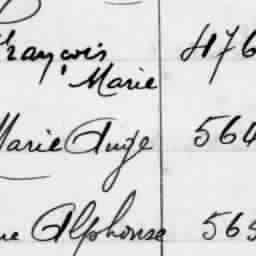 François 476
Marie
Marie Ange 564
Alphonse 565